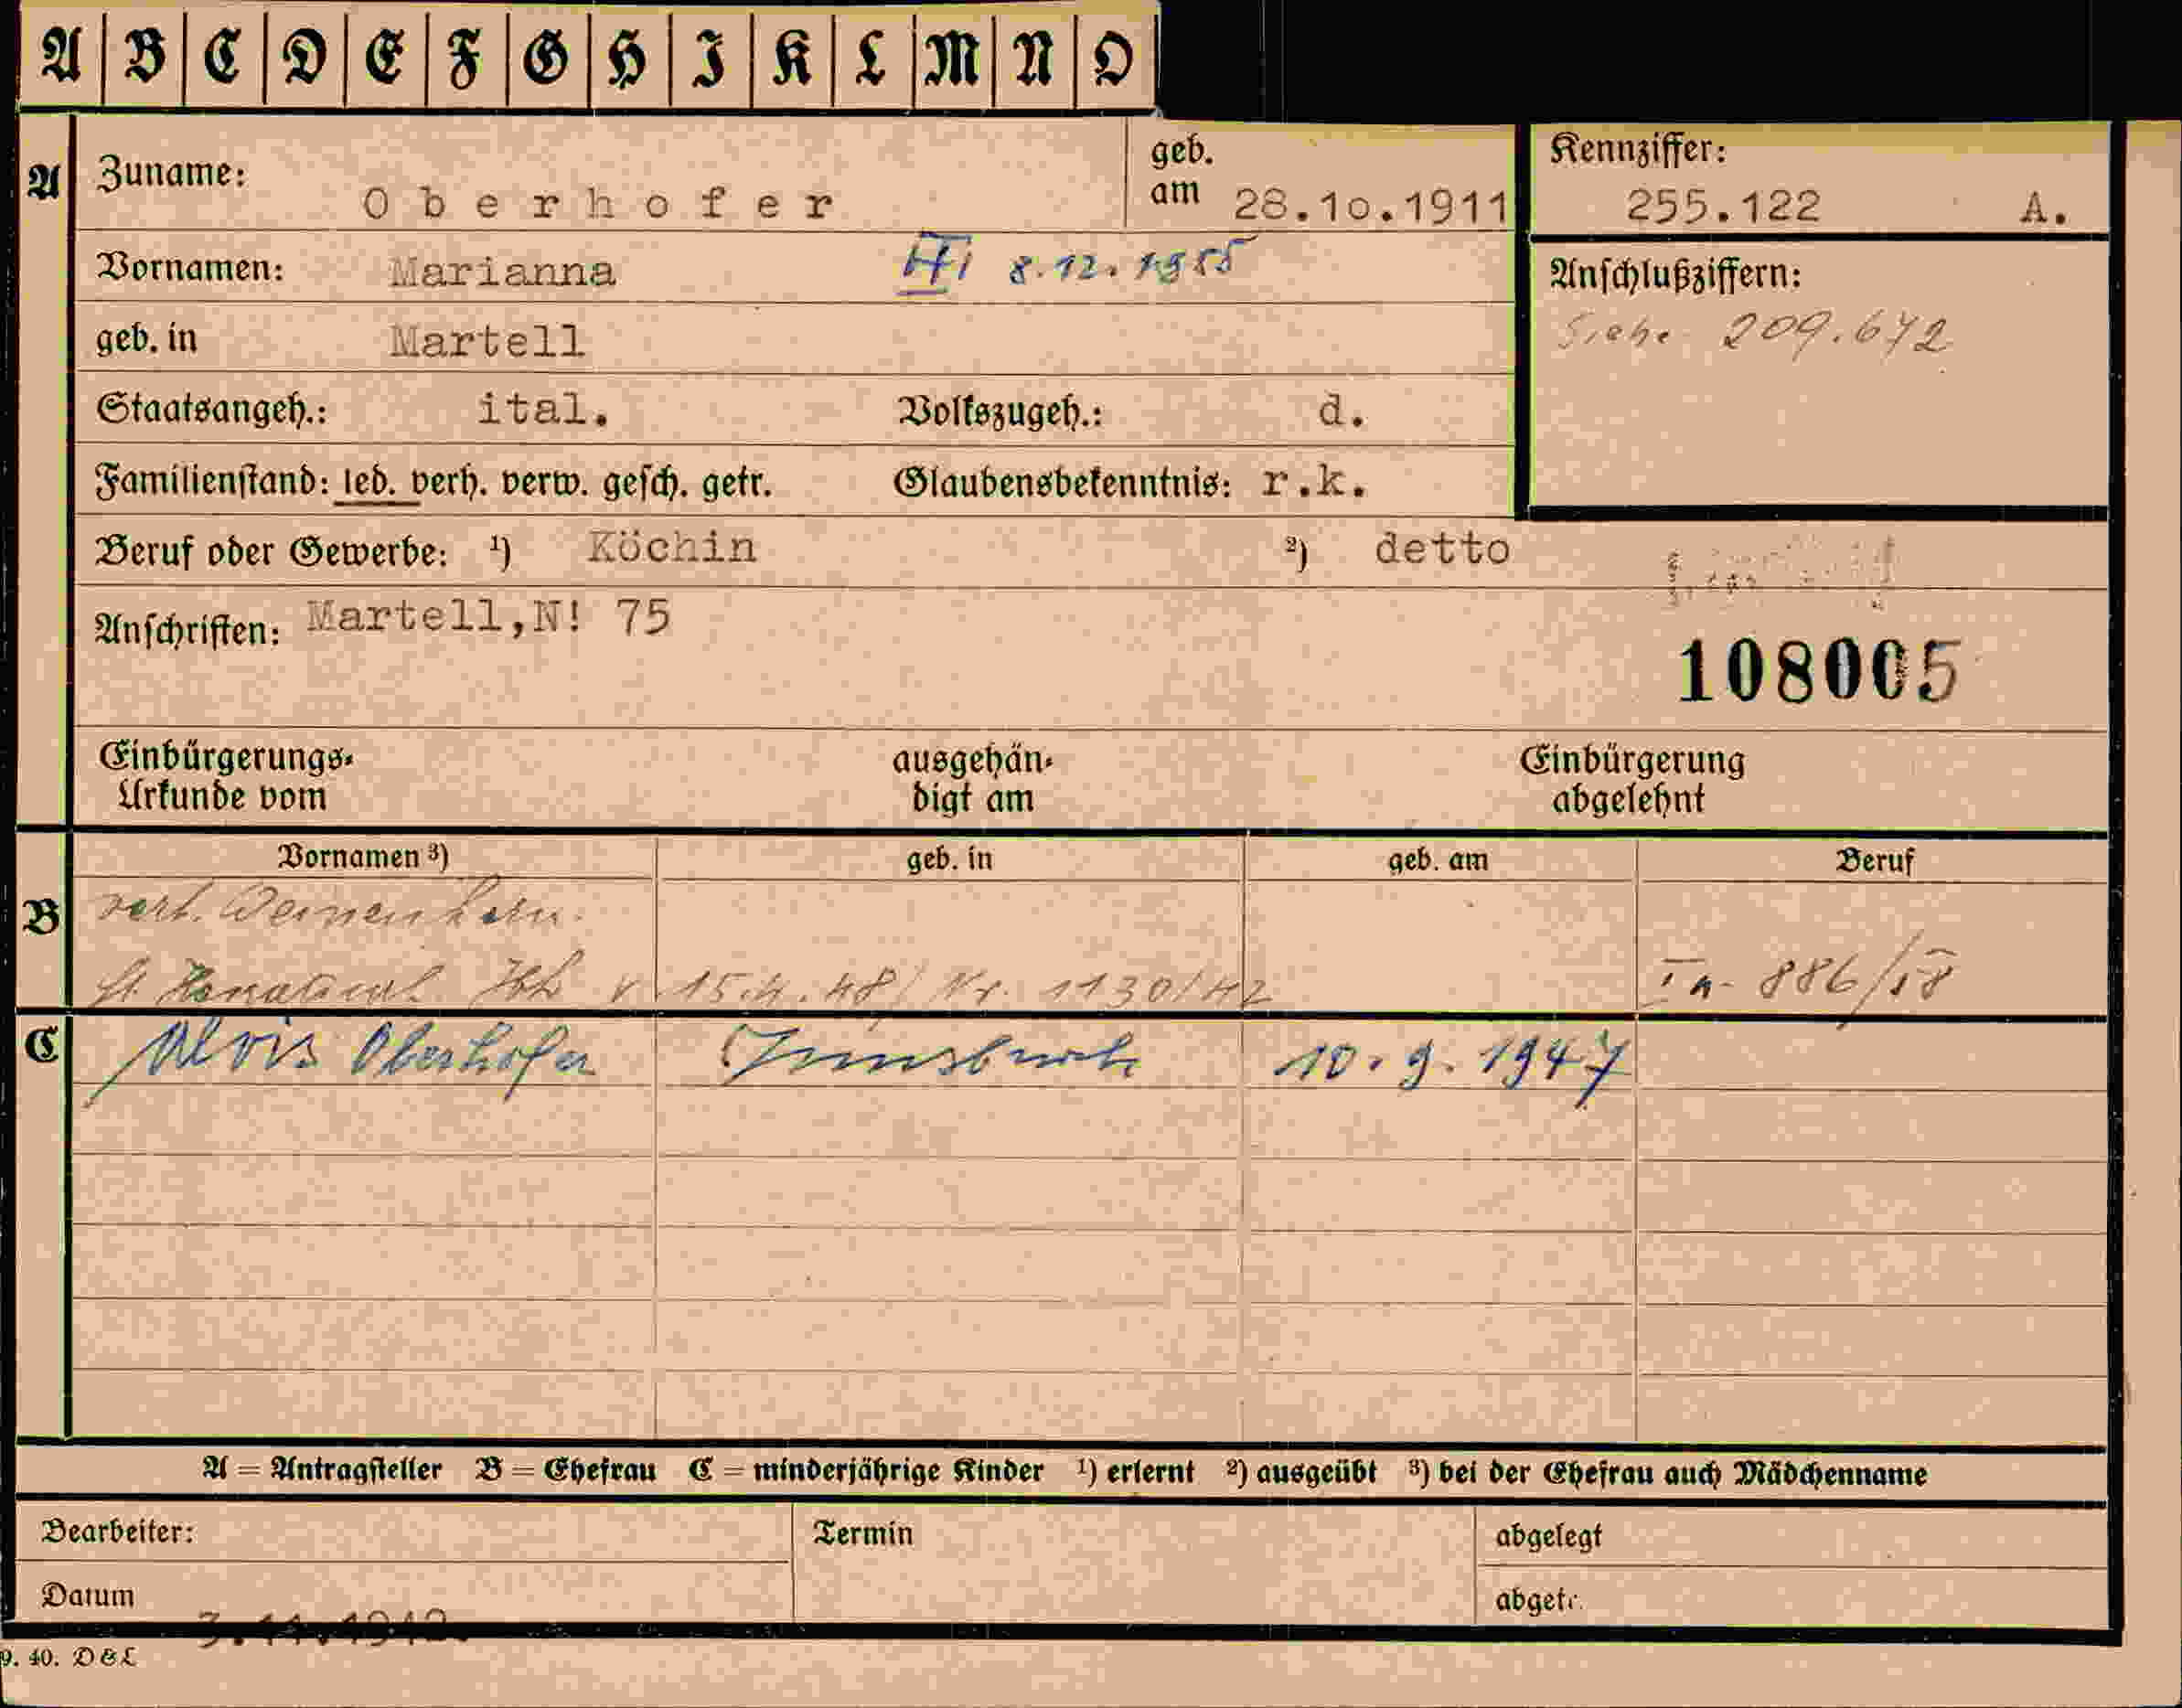 A B C D E F G H I K L M N O
A Zuname: Oberhofer geb. am 28.10.1911 Kennziffer: 255.122 A.
Vornamen: Marianna 8.12.1955 Anschlußziffern:
Siehe 209.672
geb. in Martell
Staatsangeh.: ital. Volkszugeh.: d.
Familienstand: led. verh. verw. gesch. getr. Glaubensbekenntnis: r.k.
Beruf oder Gewerbe: ¹) Köchin ²) detto
Anschriften: Martell,N! 75
108005
Einbürgerungs-Urkunde vom ausgehän-digt am Einbürgerung abgelehnt
Vornamen ³) geb. in geb. am Beruf
B
v. 15.4.48 Nr. 1130/42 886/58
C Alois Oberhofer Innsbruck 10.9.1947
A = Antragsteller B = Ehefrau C = minderjährige Kinder ¹) erlernt ²) ausgeübt ³) bei der Ehefrau auch Mädchenname
Bearbeiter: Termin abgelegt
Datum abgetr.
9. 40. D & L